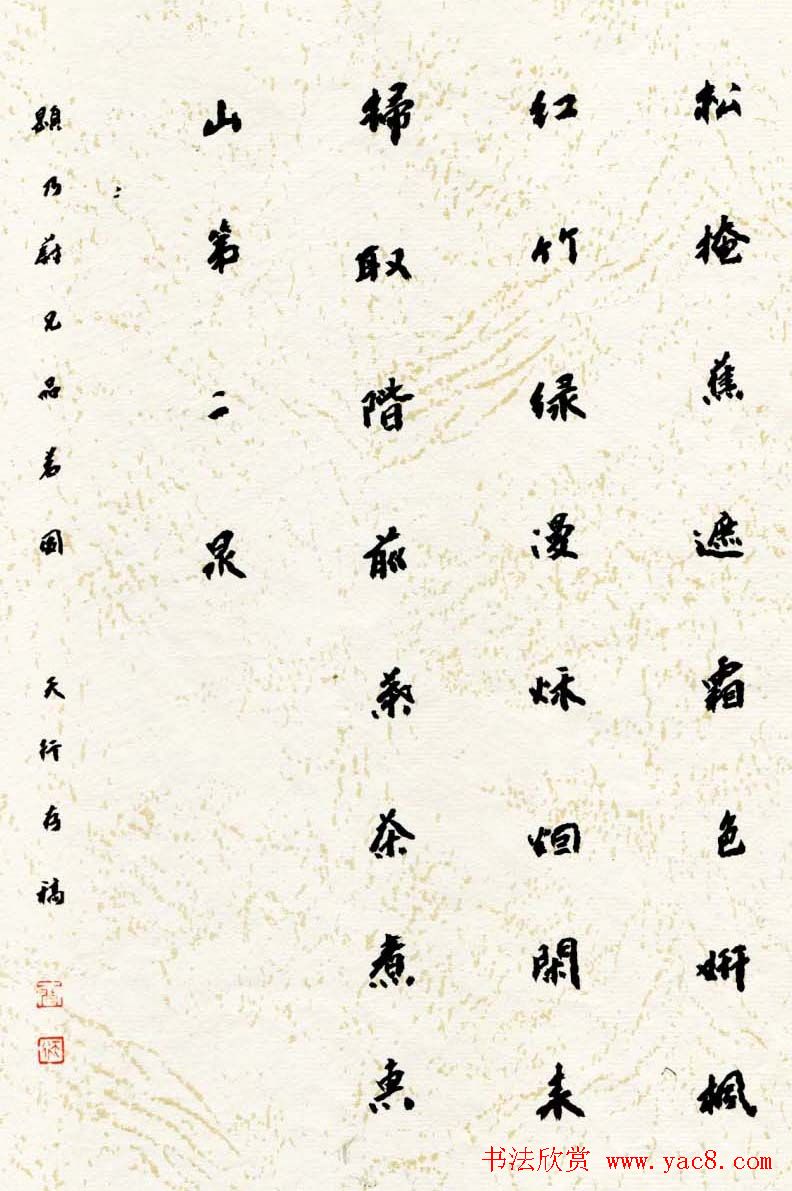 松掩蕉遮霜色妍楓
紅竹緑漫秋烟閑来
掃取階前葉茶煮惠
山第二泉
題乃蔚兄品茗图 天行存稿
书法欣赏 www.yac8.com